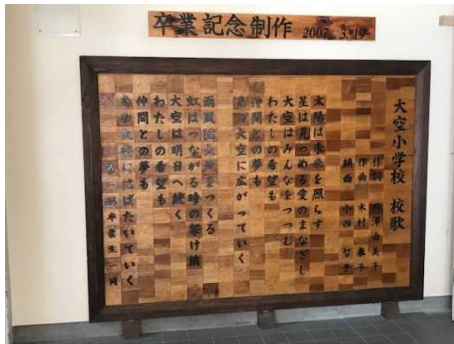 卒業記念制作 2007. 3.19
大空小学校 校歌
作詞 由美子
作曲 木村
編曲 小西
太陽は未来を照らす
星は見つめる愛のまなざし
大空はみんなをつつむ
わたしの希望も
仲間との夢も
大空に広がっていく
つくる
虹はつながる 架け橋
大空は明日へ続く
わたしの希望も
仲間との夢も
はばたいていく
卒業生一同